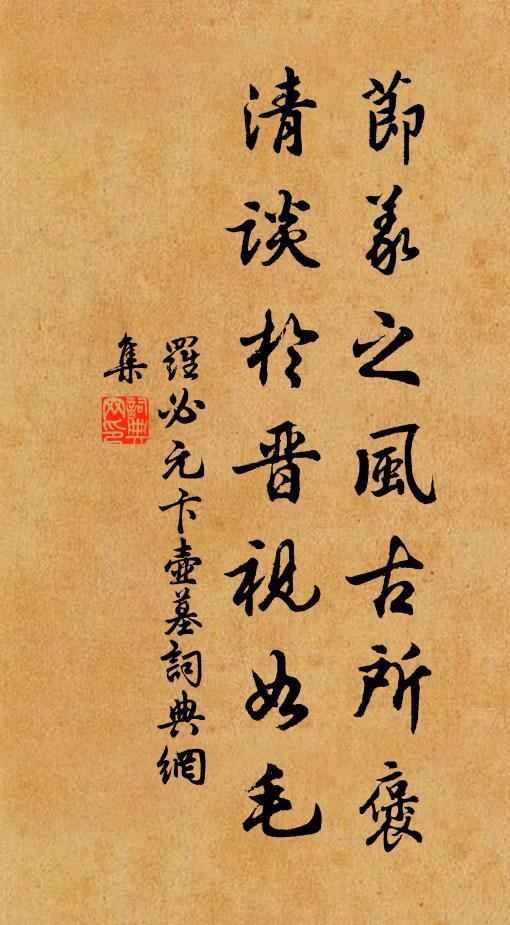 節義之風古所褒
清談於晉視如毛
羅必元卞壺墓詞典網
集
詞典網印